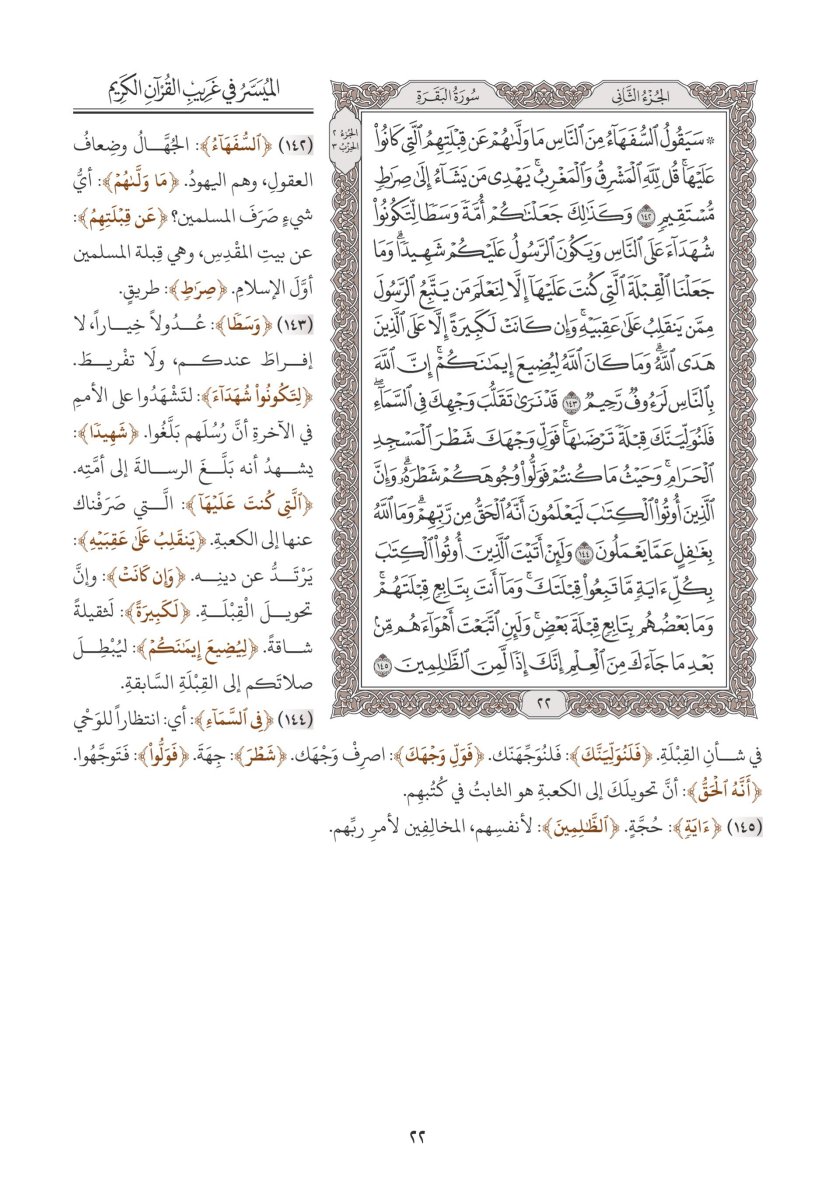 الميسر في غريب القرآن الكريم
الجزء الثاني
سورة البقرة
الجزء ٢
الحزب ٣
۞ سَيَقُولُ ٱلسُّفَهَآءُ مِنَ ٱلنَّاسِ مَا وَلَّىٰهُمْ عَن قِبْلَتِهِمُ ٱلَّتِي كَانُوا۟
عَلَيْهَا ۚ قُل لِّلَّهِ ٱلْمَشْرِقُ وَٱلْمَغْرِبُ ۚ يَهْدِي مَن يَشَآءُ إِلَىٰ صِرَٰطٍ
مُّسْتَقِيمٍ ١٤٢ وَكَذَٰلِكَ جَعَلْنَٰكُمْ أُمَّةً وَسَطًا لِّتَكُونُوا۟
شُهَدَآءَ عَلَى ٱلنَّاسِ وَيَكُونَ ٱلرَّسُولُ عَلَيْكُمْ شَهِيدًا ۗ وَمَا
جَعَلْنَا ٱلْقِبْلَةَ ٱلَّتِي كُنتَ عَلَيْهَآ إِلَّا لِنَعْلَمَ مَن يَتَّبِعُ ٱلرَّسُولَ
مِمَّن يَنقَلِبُ عَلَىٰ عَقِبَيْهِ ۚ وَإِن كَانَتْ لَكَبِيرَةً إِلَّا عَلَى ٱلَّذِينَ
هَدَى ٱللَّهُ ۗ وَمَا كَانَ ٱللَّهُ لِيُضِيعَ إِيمَٰنَكُمْ ۚ إِنَّ ٱللَّهَ
بِٱلنَّاسِ لَرَءُوفٌ رَّحِيمٌ ١٤٣ قَدْ نَرَىٰ تَقَلُّبَ وَجْهِكَ فِي ٱلسَّمَآءِ ۖ
فَلَنُوَلِّيَنَّكَ قِبْلَةً تَرْضَىٰهَا ۚ فَوَلِّ وَجْهَكَ شَطْرَ ٱلْمَسْجِدِ
ٱلْحَرَامِ ۚ وَحَيْثُ مَا كُنتُمْ فَوَلُّوا۟ وُجُوهَكُمْ شَطْرَهُۥ ۗ وَإِنَّ
ٱلَّذِينَ أُوتُوا۟ ٱلْكِتَٰبَ لَيَعْلَمُونَ أَنَّهُ ٱلْحَقُّ مِن رَّبِّهِمْ ۗ وَمَا ٱللَّهُ
بِغَٰفِلٍ عَمَّا يَعْمَلُونَ ١٤٤ وَلَئِنْ أَتَيْتَ ٱلَّذِينَ أُوتُوا۟ ٱلْكِتَٰبَ
بِكُلِّ ءَايَةٍ مَّا تَبِعُوا۟ قِبْلَتَكَ ۚ وَمَآ أَنتَ بِتَابِعٍ قِبْلَتَهُمْ ۚ
وَمَا بَعْضُهُم بِتَابِعٍ قِبْلَةَ بَعْضٍ ۚ وَلَئِنِ ٱتَّبَعْتَ أَهْوَآءَهُم مِّنۢ
بَعْدِ مَا جَآءَكَ مِنَ ٱلْعِلْمِ ۙ إِنَّكَ إِذًا لَّمِنَ ٱلظَّٰلِمِينَ ١٤٥
٢٢
(١٤٢) ﴿ٱلسُّفَهَآءُ﴾: الجُهَّالُ وضِعافُ
العقولِ، وهم اليهودُ. ﴿مَا وَلَّىٰهُمْ﴾: أيُّ
شيءٍ صَرَفَ المسلمين؟ ﴿عَن قِبْلَتِهِمُ﴾:
عن بيتِ المقْدِسِ، وهي قِبلة المسلمين
أوَّلَ الإسلامِ. ﴿صِرَٰطٍ﴾: طريقٍ.
(١٤٣) ﴿وَسَطًا﴾: عُدُولاً خِياراً، لا
إفراطَ عندكم، ولَا تفْريطَ.
﴿لِّتَكُونُوا۟ شُهَدَآءَ﴾: لتَشْهَدُوا على الأممِ
في الآخرةِ أنَّ رُسلَهم بَلَّغُوا. ﴿شَهِيدًا﴾:
يشهدُ أنه بَلَّغَ الرسالةَ إلى أمَّتِه.
﴿ٱلَّتِي كُنتَ عَلَيْهَآ﴾: الَّتي صَرَفْناك
عنها إلى الكعبةِ. ﴿يَنقَلِبُ عَلَىٰ عَقِبَيْهِ﴾:
يَرْتَدُّ عن دينِه. ﴿وَإِن كَانَتْ﴾: وإنَّ
تحويلَ الْقِبْلَةِ. ﴿لَكَبِيرَةً﴾: لَثقيلةً
شاقةً. ﴿لِيُضِيعَ إِيمَٰنَكُمْ﴾: ليُبْطِلَ
صلاتَكم إلى القِبْلَةِ السَّابقةِ.
(١٤٤) ﴿فِي ٱلسَّمَآءِ﴾: أي: انتظاراً للوَحْي
في شأنِ القِبْلَةِ. ﴿فَلَنُوَلِّيَنَّكَ﴾: فلنُوَجِّهَنَك. ﴿فَوَلِّ وَجْهَكَ﴾: اصرِفْ وَجْهَك. ﴿شَطْرَ﴾: جِهَةَ. ﴿فَوَلُّوا۟﴾: فَتَوجَّهُوا.
﴿أَنَّهُ ٱلْحَقُّ﴾: أنَّ تحويلَكَ إلى الكعبةِ هو الثابتُ في كُتُبهِم.
(١٤٥) ﴿ءَايَةٍ﴾: حُجَّةٍ. ﴿ٱلظَّٰلِمِينَ﴾: لأنفسِهم، المخالِفِين لأمرِ ربِّهم.
٢٢